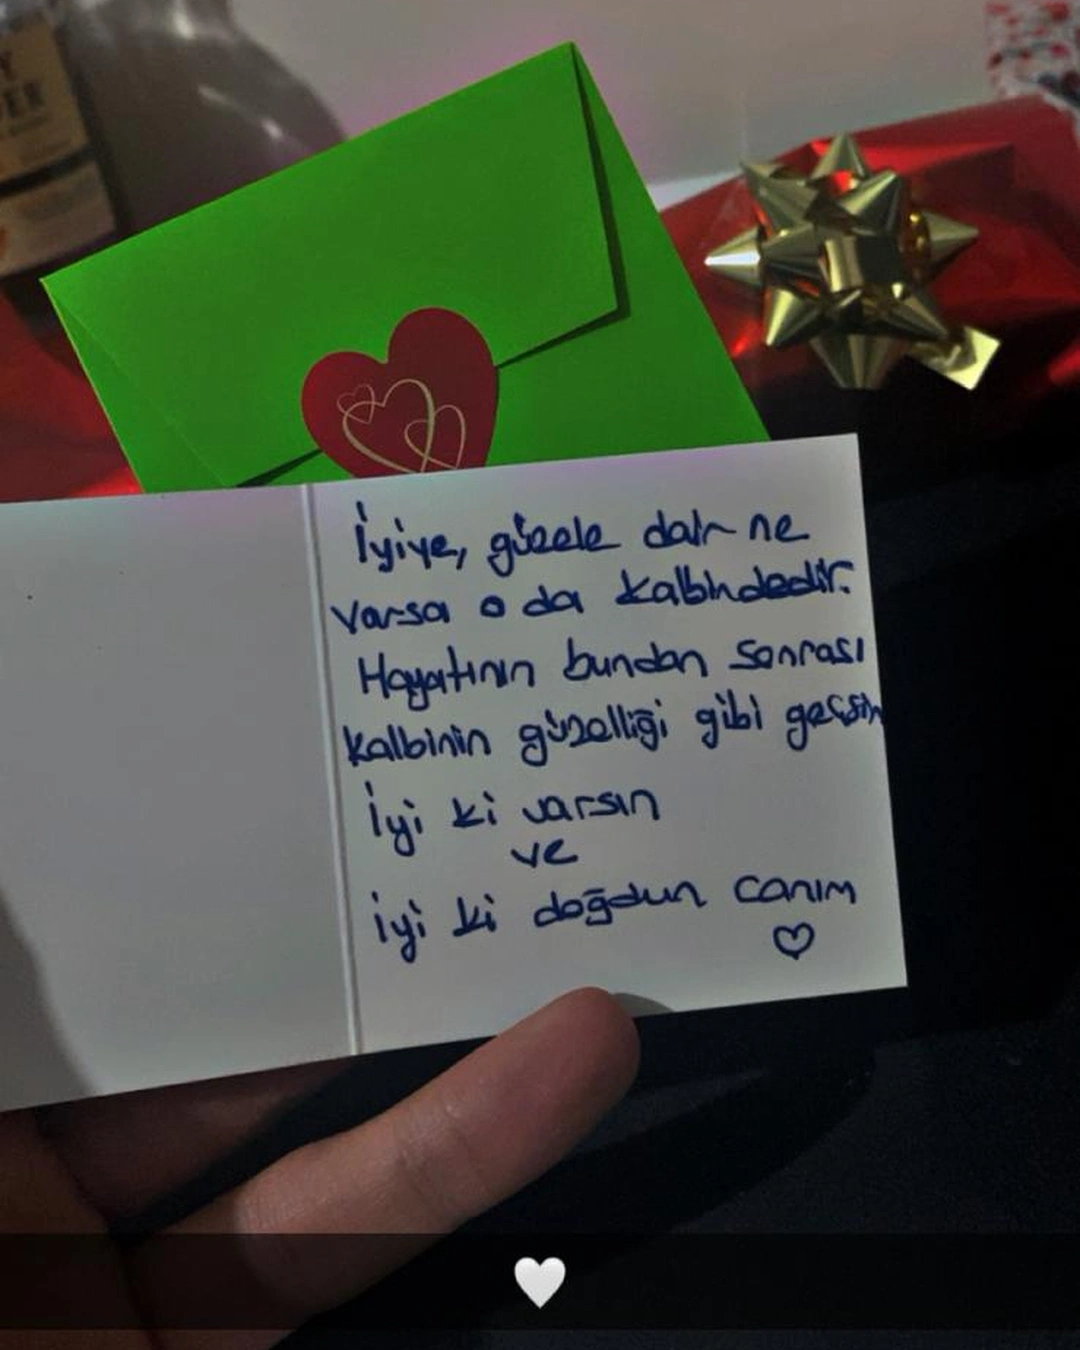 Y
DER
İyiye, güzele dair ne
varsa o da kalbindedir.
Hayatının bundan sonrası
kalbinin güzelliği gibi geçsin
İyi ki varsın
ve
iyi ki doğdun canım